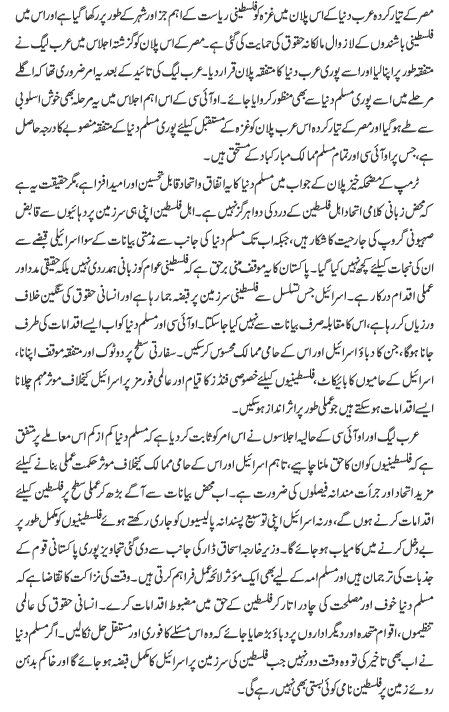 مصر کے تیار کردہ عرب دنیا کے اس پلان میں غزہ کو فلسطینی ریاست کے اہم جز اور شہر کے طور پر رکھا گیا ہے اور اس میں
فلسطینی باشندوں کے لازوال مالکانہ حقوق کی حمایت کی گئی ہے۔ مصر کے اس پلان کو گزشتہ اجلاس میں عرب لیگ نے
متفقہ طور پر اپنا لیا اور اسے پوری عرب دنیا کا متفقہ پلان قرار دیا۔ عرب لیگ کی تائید کے بعد یہ امر ضروری تھا کہ اگلے
مرحلے میں اسے پوری مسلم دنیا سے بھی منظور کروایا جائے۔ او آئی سی کے اس اہم اجلاس میں یہ مرحلہ بھی خوش اسلوبی
سے طے ہو گیا اور مصر کے تیار کردہ اس عرب پلان کو غزہ کے مستقبل کیلئے پوری مسلم دنیا کے متفقہ منصوبے کا درجہ حاصل
ہے، جس پر او آئی سی اور تمام مسلم ممالک مبارکباد کے مستحق ہیں۔
ٹرمپ کے مضحکہ خیز پلان کے جواب میں مسلم دنیا کا یہ اتفاق واتحاد قابل تحسین اور امید افزا ہے، مگر حقیقت یہ ہے
کہ محض زبانی کلامی اتحاد اہل فلسطین کے درد کی دوا ہرگز نہیں ہے۔ اہل فلسطین اپنی ہی سرزمین پر دہائیوں سے قابض
صہیونی گروپ کی جارحیت کا شکار ہیں، جبکہ اب تک مسلم دنیا کی جانب سے مذمتی بیانات کے سوا اسرائیلی قبضے سے
ان کی نجات کیلئے کچھ نہیں کیا گیا۔ پاکستان کا یہ موقف مبنی برحق ہے کہ فلسطینی عوام کو زبانی ہمدردی نہیں بلکہ حقیقی مدد اور
عملی اقدام درکار ہے۔ اسرائیل جس تسلسل سے فلسطینی سرزمین پر قبضہ جما رہا ہے اور انسانی حقوق کی سنگین خلاف
ورزیاں کر رہا ہے، اس کا مقابلہ صرف بیانات سے نہیں کیا جا سکتا۔ او آئی سی اور مسلم دنیا کو اب ایسے اقدامات کی طرف
جانا ہوگا، جن کا دباؤ اسرائیل اور اس کے حامی ممالک محسوس کر سکیں۔ سفارتی سطح پر دوٹوک اور متفقہ موقف اپنانا،
اسرائیل کے حامیوں کا بائیکاٹ، فلسطینیوں کیلئے خصوصی فنڈز کا قیام اور عالمی فورمز پر اسرائیل کیخلاف موثر مہم چلانا
ایسے اقدامات ہو سکتے ہیں جو عملی طور پر اثر انداز ہو سکیں۔
عرب لیگ اور او آئی سی کے حالیہ اجلاسوں نے اس امر کو ثابت کر دیا ہے کہ مسلم دنیا کم از کم اس معاملے پر متفق
ہے کہ فلسطینیوں کو ان کا حق ملنا چاہیے، تاہم اسرائیل اور اس کے حامی ممالک کیخلاف موثر حکمت عملی بنانے کے لیے
مزید اتحاد اور جرأت مندانہ فیصلوں کی ضرورت ہے۔ اب محض بیانات سے آگے بڑھ کر عملی سطح پر فلسطین کیلئے
اقدامات کرنے ہوں گے، ورنہ اسرائیل اپنی توسیع پسندانہ پالیسیوں کو جاری رکھتے ہوئے فلسطینیوں کو مکمل طور پر
بے دخل کرنے میں کامیاب ہو جائے گا۔ وزیر خارجہ اسحاق ڈار کی جانب سے دی گئی تجاویز پوری پاکستانی قوم کے
جذبات کی ترجمان ہیں اور مسلم امہ کے لیے بھی ایک موثر لائحہ عمل فراہم کرتی ہیں۔ وقت کی نزاکت کا تقاضا ہے کہ
مسلم دنیا خوف اور مصلحت کی چادر اتار کر فلسطین کے حق میں مضبوط اقدامات کرے۔ انسانی حقوق کی عالمی
تنظیموں، اقوام متحدہ اور دیگر اداروں پر دباؤ بڑھایا جائے کہ وہ اس مسئلے کا فوری اور مستقل حل نکالیں۔ اگر مسلم دنیا
نے اب بھی تاخیر کی تو وہ وقت دور نہیں جب فلسطین کی سرزمین پر اسرائیل کا مکمل قبضہ ہو جائے گا اور خاکم بدہن
روئے زمین پر فلسطین نامی کوئی بستی بھی نہیں رہے گی۔